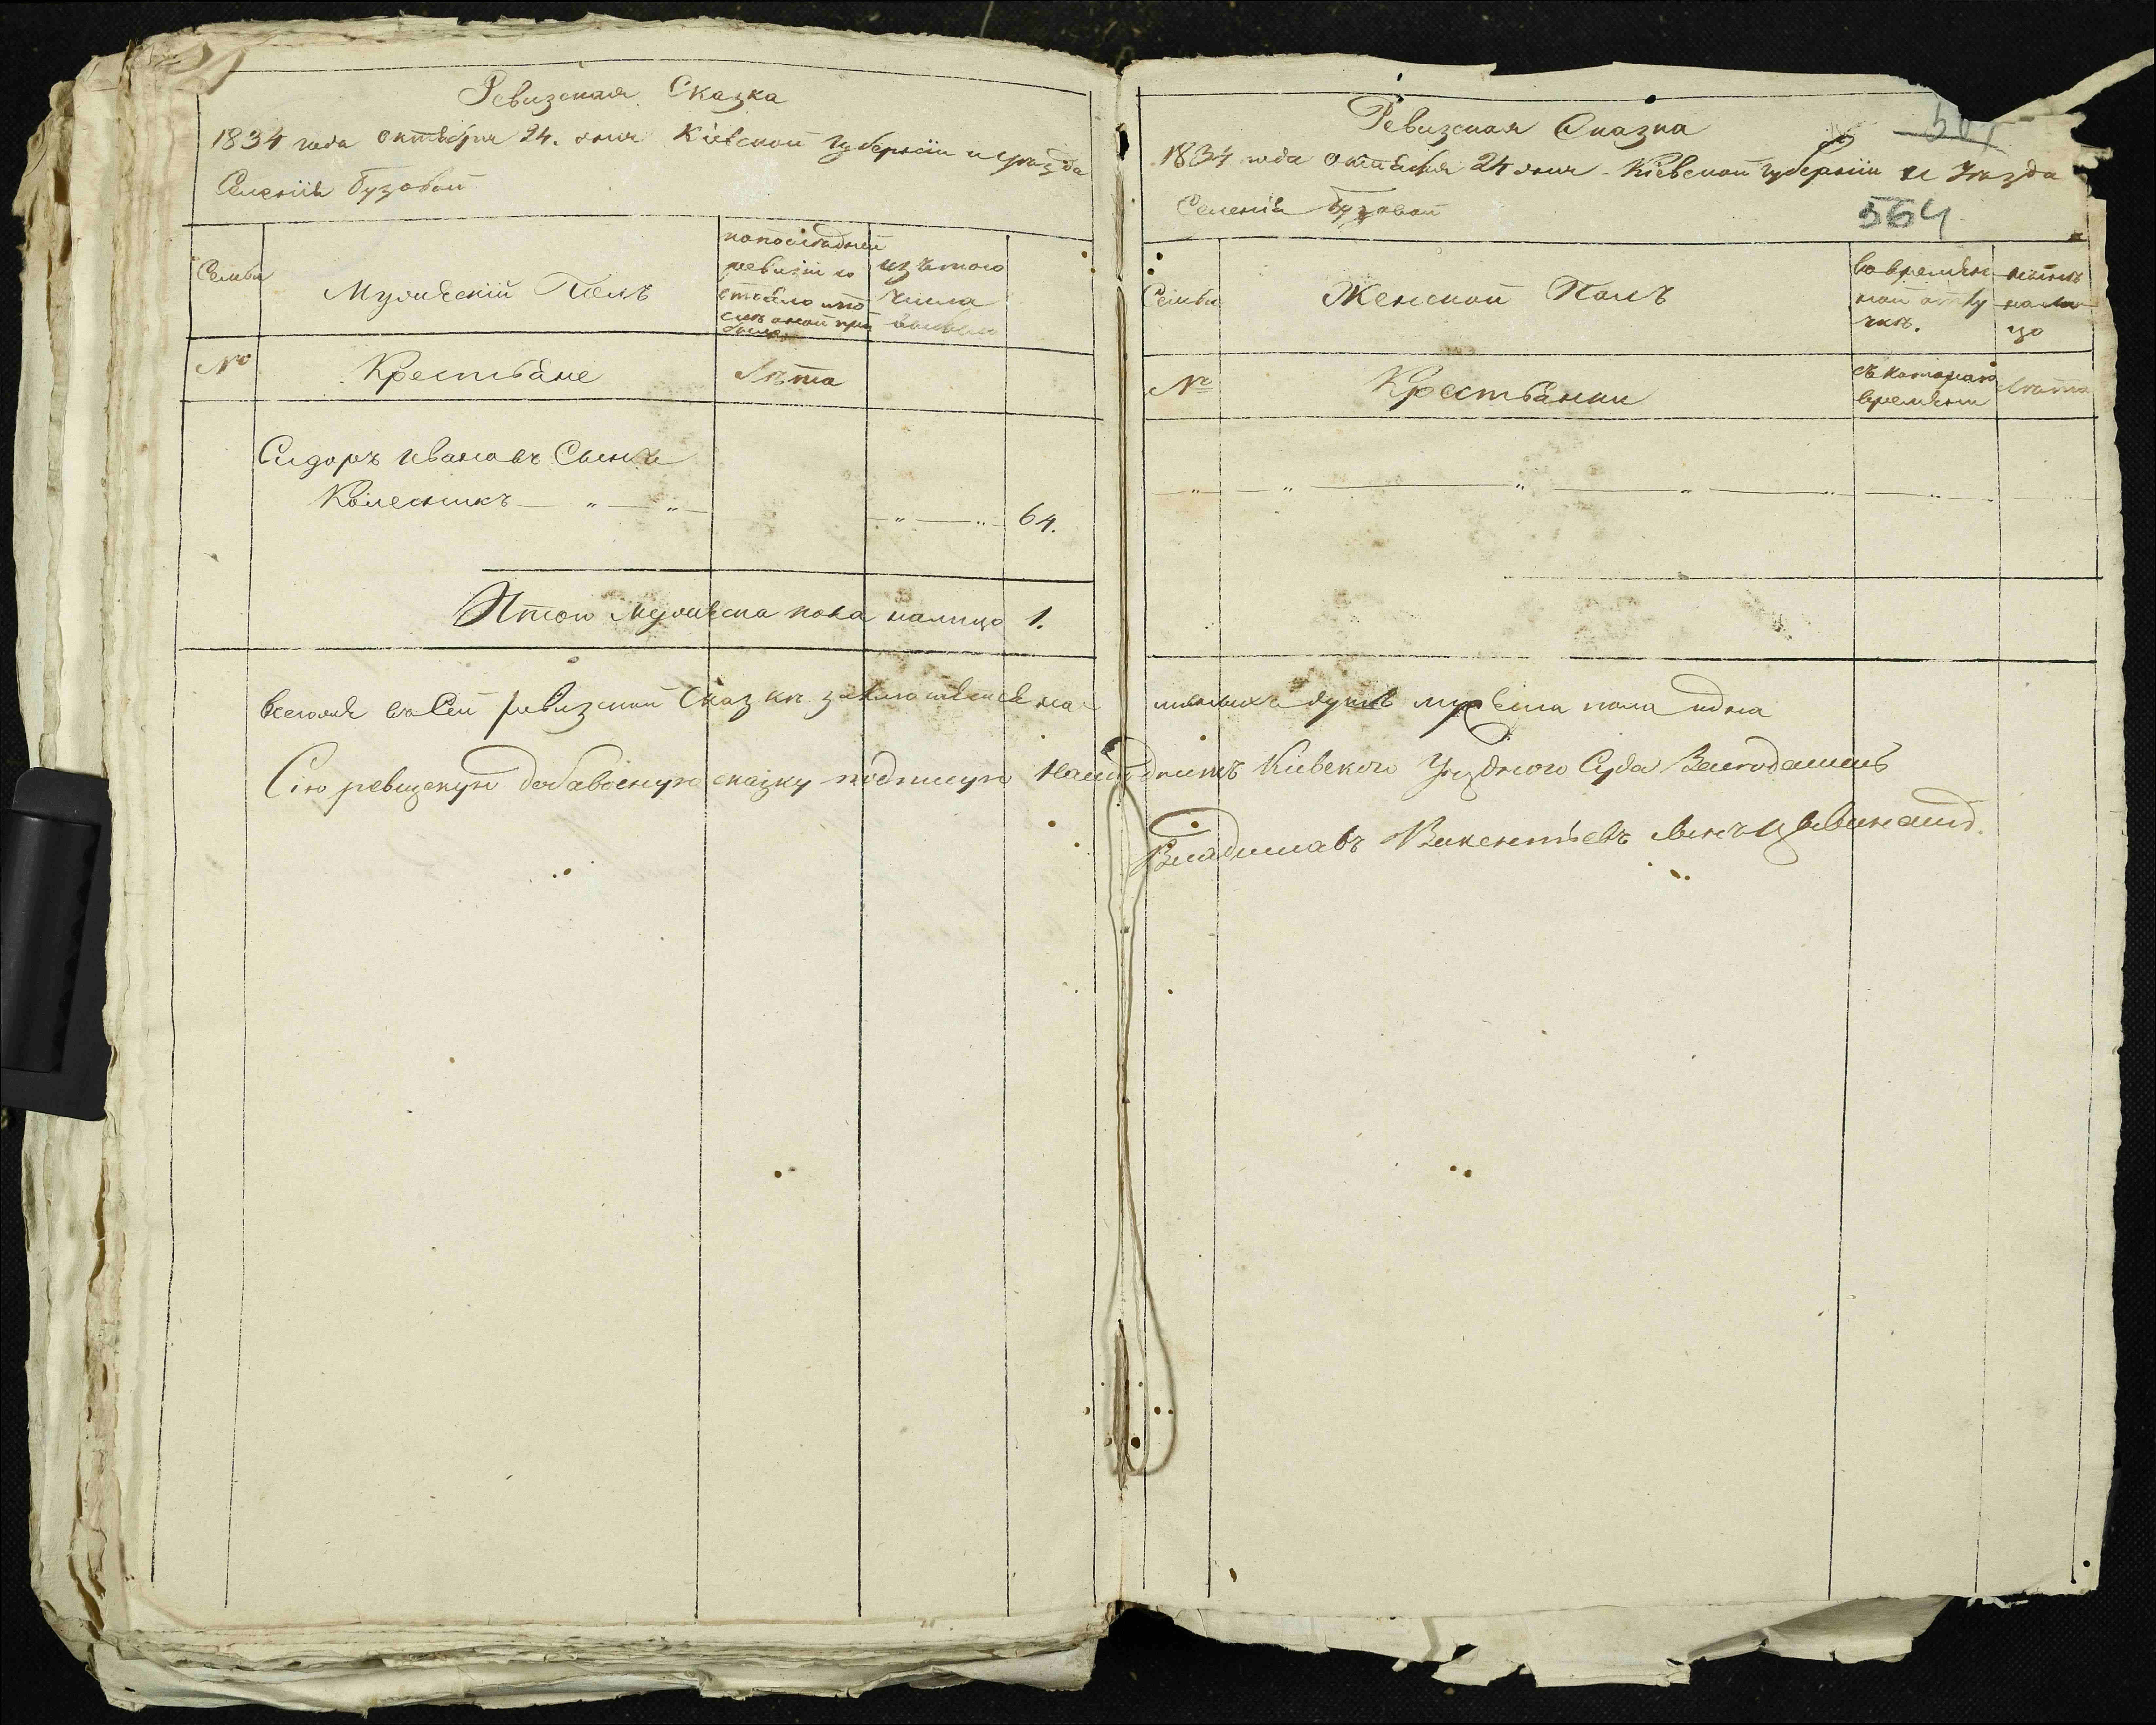 Ревизская Сказка
1834 года октября 24. дня Кіевской губерніи и уѣзда
Селенія Бузовой
Семьи
Мужескій Полъ
по последней
ревизіи со
стояло и по
слѣ оной при
было
изъ того
числа
выбыло
№
Крестьяне
Лѣта
Сидоръ Ивановъ Сынъ
Колесникъ — " — " — — " — " — 64.
Итого мужеска пола налицо 1.
Ревизская Сказка
564
1834 года октября 24 дня Кіевской губерніи и Уѣзда
Селенія Бузовой
Семьи
Женской Полъ
во времен
ной отлу
чкѣ.
нынѣ
на ли
цо
№
Крестьянки
съ котораго
времени
Лѣта
Всего въ сей ревизской Сказкѣ наличныхъ душъ мужеска пола одна
Сію ревизскую добавочную сказку подписую Кіевского Уѣздного Суда
Владиславъ Викентьевъ сынъ